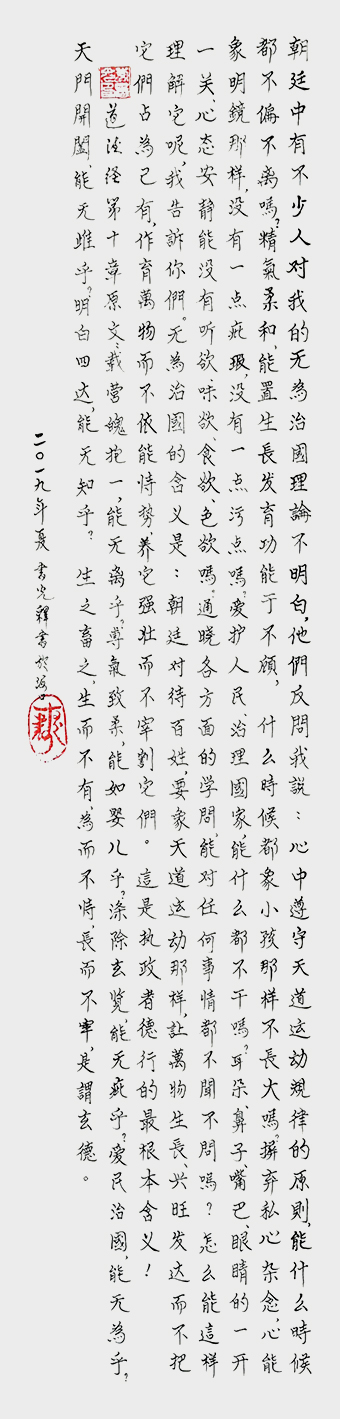 朝廷中有不少人对我的无為治國理論不明白,他們反問我説:心中遵守天道运动規律的原則,能什么時候
都不偏不离嗎?精氣柔和,能置生長发育功能于不顧,什么時候都象小孩那样不長大嗎?摒弃私心杂念,心能
象明鏡那样,没有一点疵瑕,没有一点污点嗎?愛护人民、治理國家,能什么都不干嗎?耳朵、鼻子、嘴巴、眼睛的一开
一关、心态安静能没有听欲、味欲、食欲、色欲嗎?通晓各方面的学問,能对任何事情都不聞不問嗎?怎么能這样
理解它呢,我告訴你們。无為治國的含义是:朝廷对待百姓,要象天道运动那样,让萬物生長、兴旺发达而不把
它們占為己有,作育萬物而不依能恃势,养它强壮而不宰割它們。這是执政者德行的最根本含义!
道德经第十章原文:载营魄抱一,能无离乎?專氣致柔,能如婴儿乎?涤除玄览,能无疵乎?愛民治國,能无為乎?
天門開闔,能无雌乎?明白四达,能无知乎?生之畜之,生而不有,為而不恃,長而不宰,是謂玄德。
二〇一九年夏